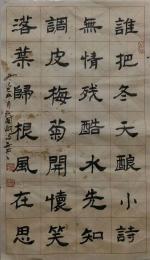 誰把冬天釀小詩
無情殘酷水先知
調皮梅菊開懷笑
落葉歸根風在思